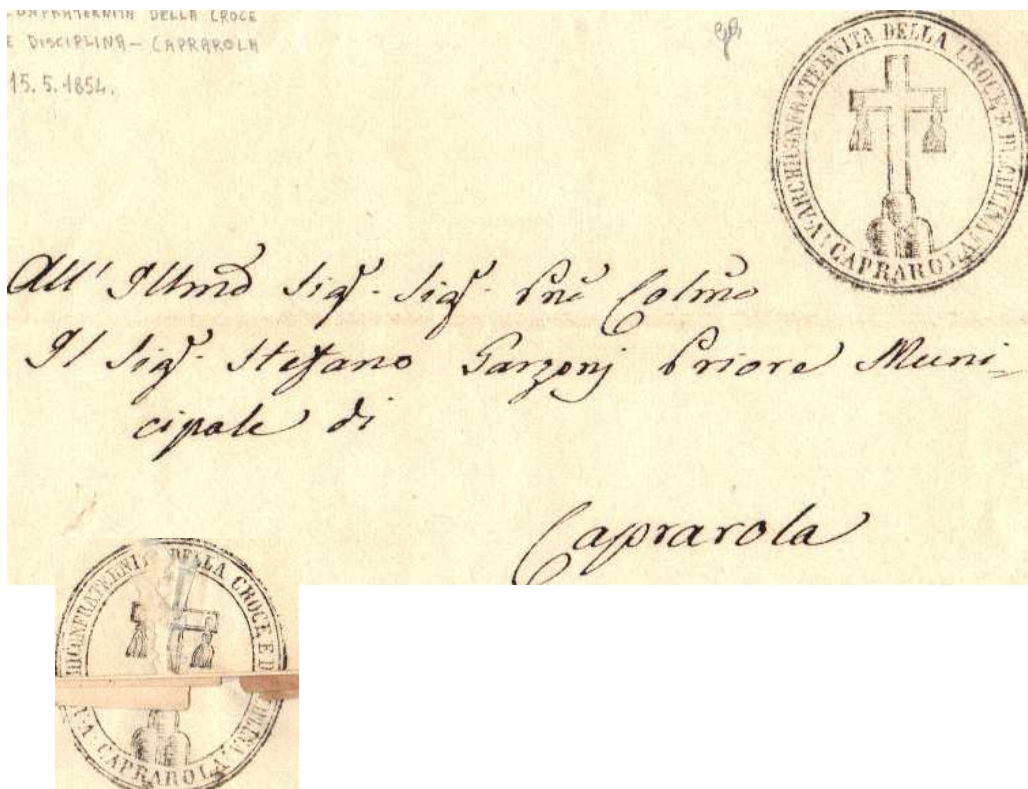 CONFRATERNITÀ DELLA CROCE
E DISCIPLINA - CAPRAROLA
15.5.1854.
V. ARCHICONFRATERNITA DELLA CROCE, E DISCIPLINA
CAPRAROLA
All' Illmo Sigr. Sigr. Pne Colmo
Il Sigr. Stefano Garzonj Priore Muni-
cipale di
Caprarola
DELLA CROCE E
CAPRAROLA